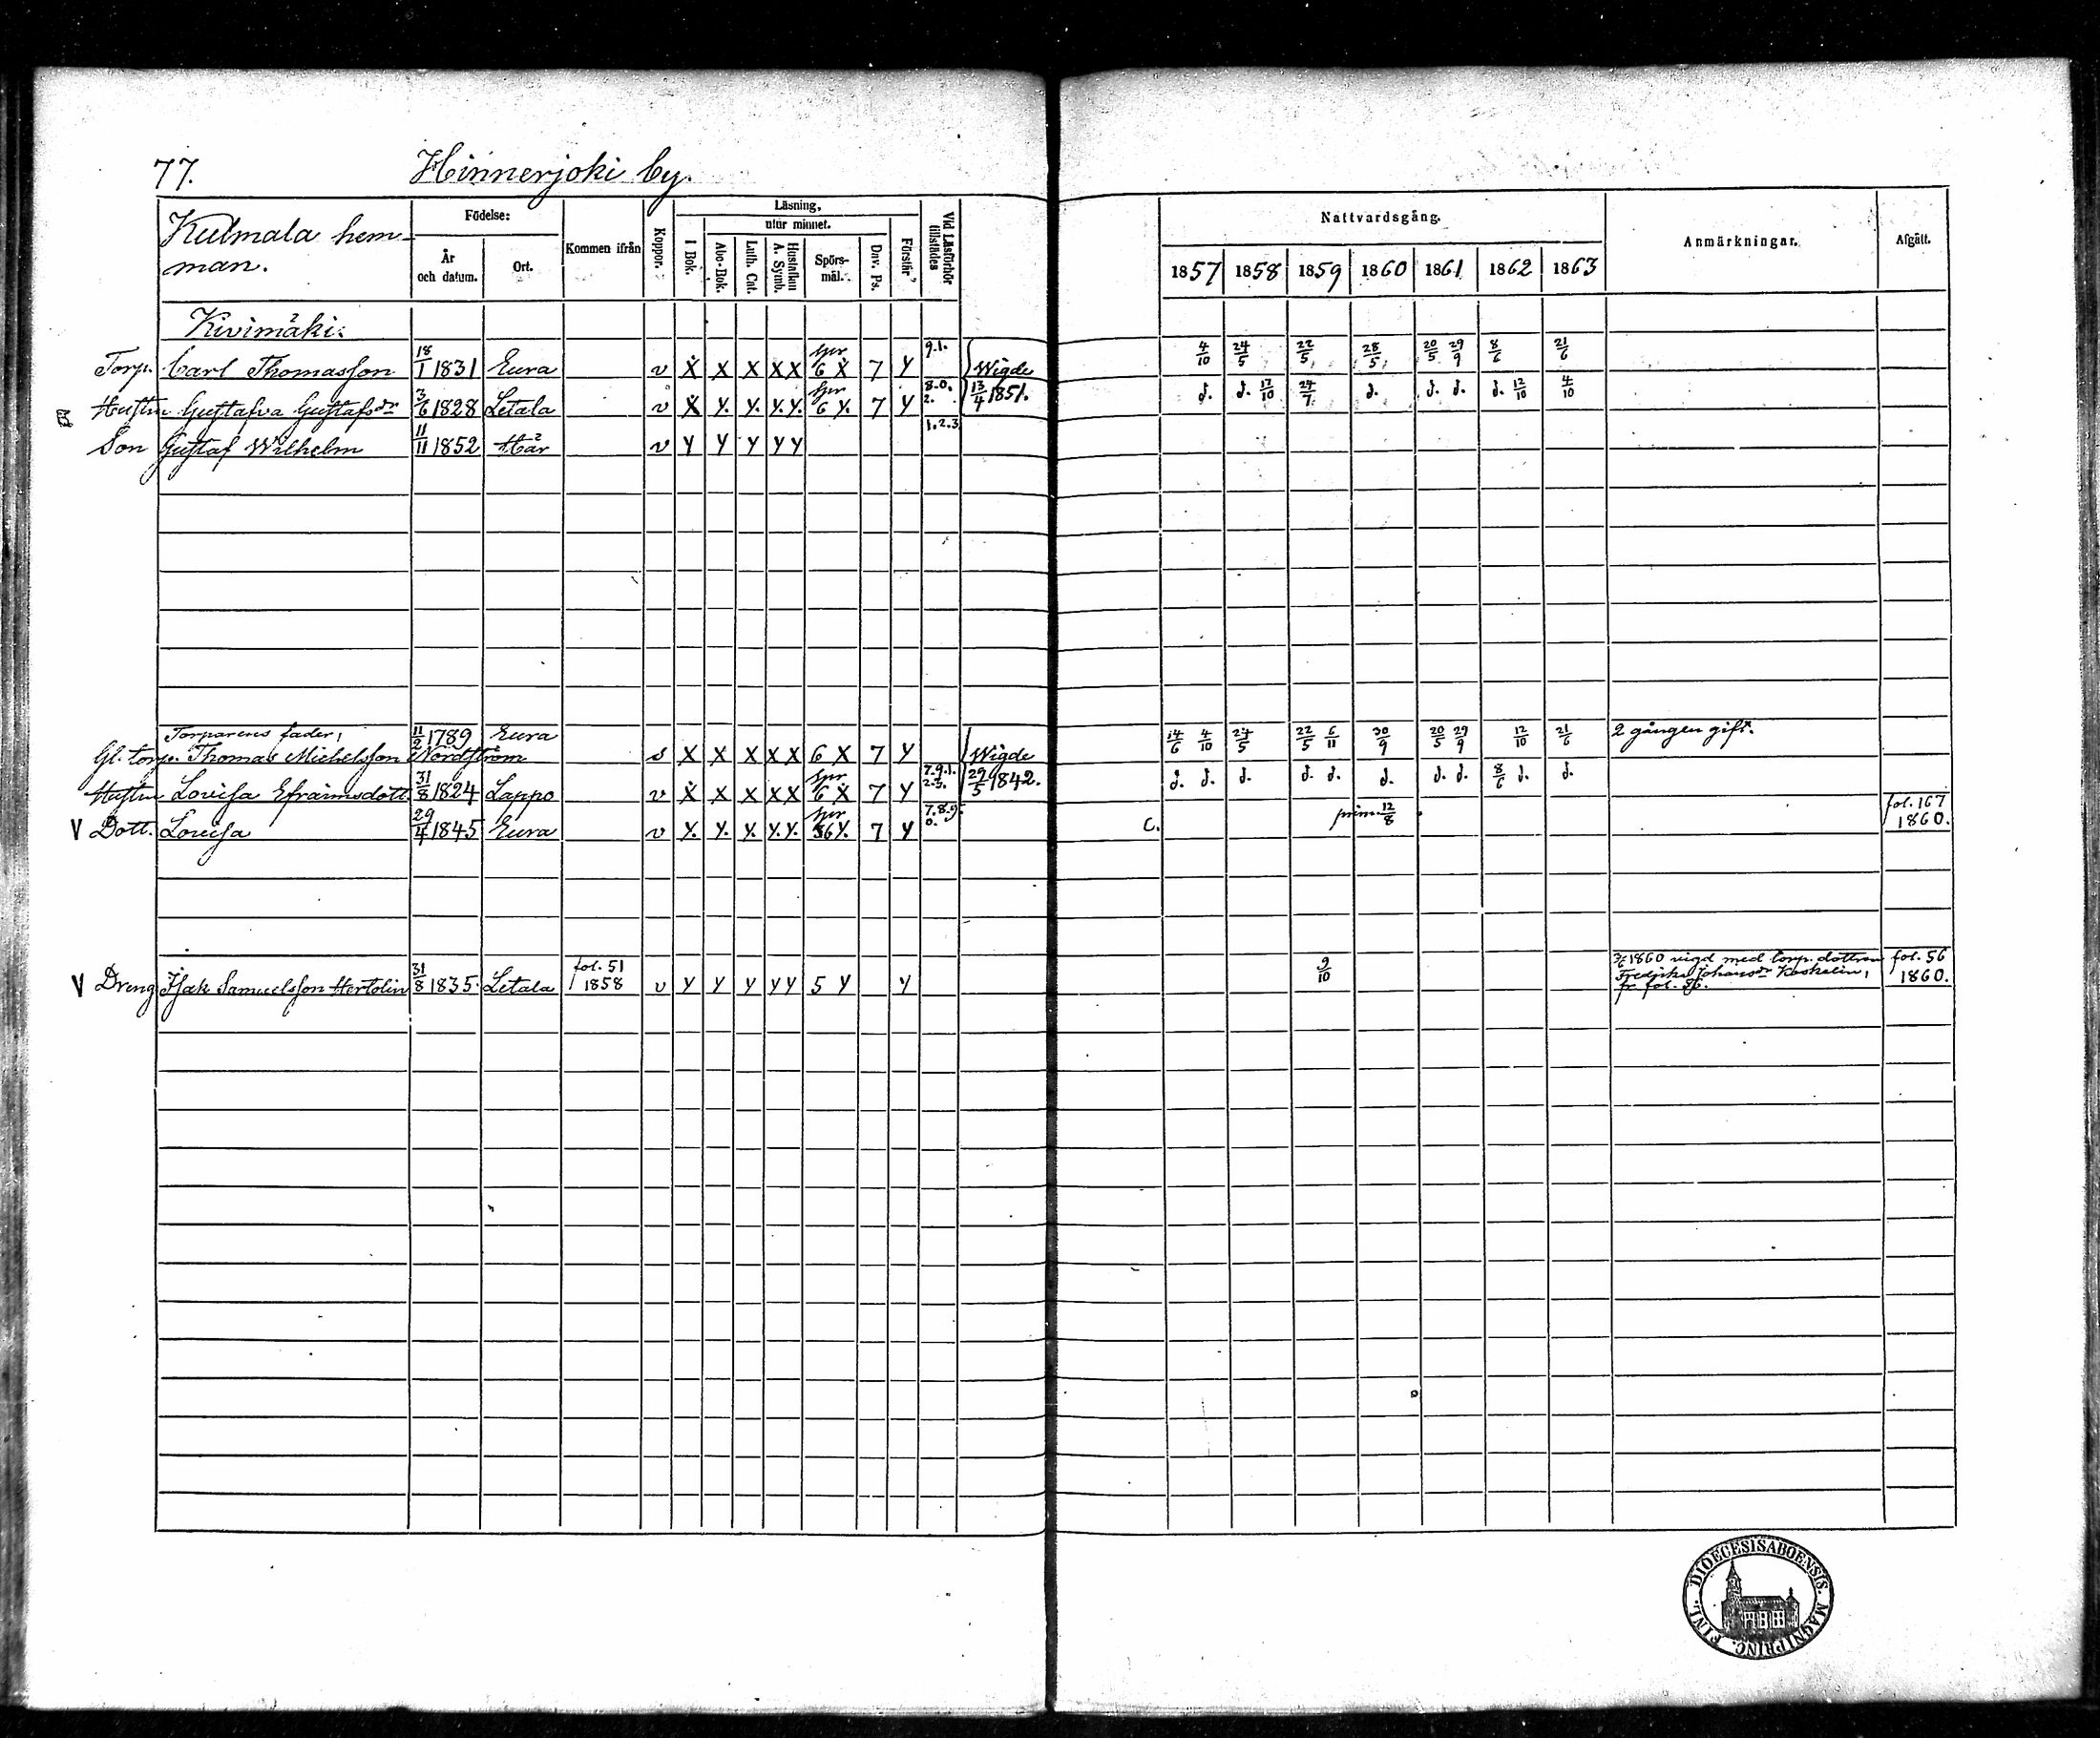 77. Hinnerjoki by.
Kulmala hem-
man.
Födelse:
År
och datum.
Ort.
Kommen ifrån
Koppor.
Läsning,
utur minnet.
I Bok.
Abc-Bok.
Luth. Cat.
Hustaflan
A. Symb.
Spörs-
mål.
Dav. Ps.
Förstår
Vid Läsförhör
tillstädes
Nattvardsgång.
1857 1858 1859 1860 1861 1862 1863
Anmärkningar.
Afgått.
Kivimäki:
Torp. Carl Thomasson 18/1 1831 Eura v X X X X X spr 6 X 7 Y 9.1. Wigde 4/10 24/5 22/5 28/5 20/5 29/9 8/6 21/6
Hustru Gustafva Gustafsdr 3/6 1828 Letala v X Y. Y. Y. Y. spr 6 Y. 7 Y 8.0. 2. 13/4 1851. d. d. 17/10 24/7 d. d. d. d. 12/10 4/10
Son Gustaf Wilhelm 11/11 1852 Här v Y Y Y Y Y 1.2.3
Torparens fader, 11/2 1789 Eura
Gl. torp. Thomas Michelsson Nordström s X X X X X 6 X 7 Y Wigde 14/6 4/10 24/5 22/5 6/11 30/9 20/5 29/9 12/10 21/6 2 gången gift.
Hustru Lovisa Efraimsdott 31/8 1824 Lappo v X X X X X spr 6 X 7 Y 7.9.1. 2.3. 29/5 1842. d. d. d. d. d. d. d. d. 8/6 d. d.
V Dott. Lovisa 29/4 1845 Eura v Y. Y. Y. Y. Y. spr 56 Y. 7 Y 7.8.9. 0. C. prim. 12/8 fol. 167
1860.
V Dreng Isak Samuelsson Hertolin 31/8 1835. Letala fol. 51
1858 v Y Y Y Y Y 5 Y Y 9/10 3/6 1860 vigd med torp. dottren
Fredrika Johansdr Kaskelin,
fr fol. 56.
fol. 56
1860.
DIOECESIS ABOENSIS. MAGNI PRINC. FINL.